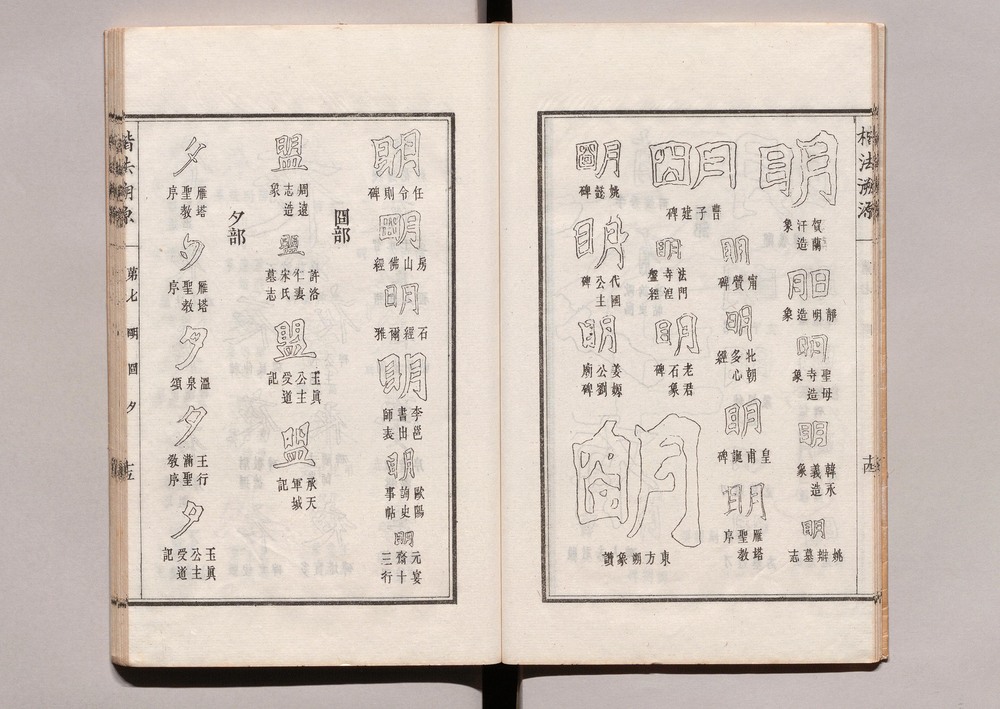 楷法溯源
明
賀蘭汗造象
明
靜明造象
明
聖母寺造象
明
韓永義造象
明
姚辯墓志
明
曹子建碑
明
甯贊碑
明
北朝多心經
明
皇甫誕碑
明
雁塔聖教序
明
法門寺涅槃經
明
老君石象碑
明
姚懿碑
明
代國公主碑
明
姜嫄公劉廟碑
明
東方朔象讚
明
任令則碑
明
房山佛經
明
石經爾雅
明
李邕書出師表
明
歐陽詢史事帖
明
元宴齋十三行
囧部
盟
周遠志造象
盟
許洛仁妻宋氏墓志
盟
玉眞公主受道記
盟
承天軍城記
夕部
夕
雁塔聖教序
夕
雁塔聖教序
夕
溫泉頌
夕
王行滿聖教序
夕
玉眞公主受道記
楷法溯源
第七 明 囧 夕